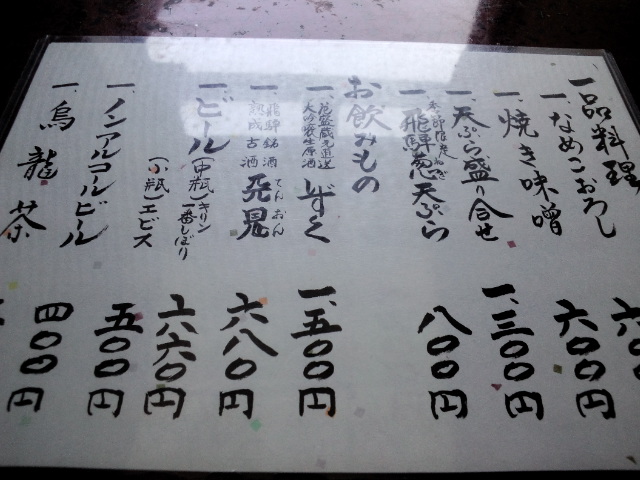 一品料理
一、なめこおろし 六〇
一、焼き味噌 六〇〇円
一、天ぷら盛り合せ 一、三〇〇円
一、季節限定 飛騨葱天ぷら ねぎ 八〇〇円
お飲みもの
一、蔵元直送 大吟醸生原酒 しずく 一、五〇〇円
一、飛騨銘酒 熟成古酒 てんおん 六八〇円
一、ビール(中瓶)キリン一番しぼり 六六〇円
(小瓶)エビス
一、ノンアルコールビール 五〇〇円
一、烏龍茶 四〇〇円